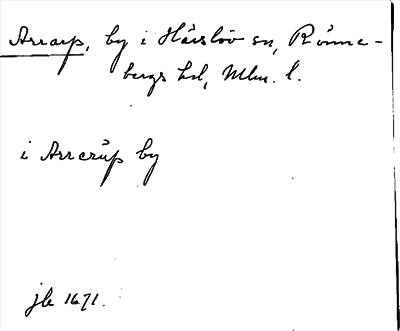 Arrarp, by i Häislöv sn, Rönne-
bergs hd, Mlm. l.
i Arrerup by
jb 1671.